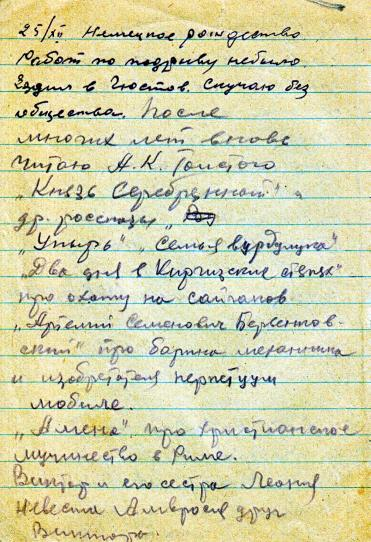 25/XII Немецкое рождество
Работ по подрыву небыло
Ездил в Гюстов. Скучаю без
общества. После
многих лет вновь
читаю А.К. Толстого
„Князь Серебренный" и
др. рассказы
„Упырь" „Семья вурдулука"
„Два дня в Киргизских степях"
про охоту на сайгаков
„Артемий Семенович Бервентов-
ский" про барина механика
и изобретателя перпетуум
мобиле.
„Амена" про христианское
мучинество в Риме.
Виктор и его сестра Леония
невеста Амвросия друг
Виктора.